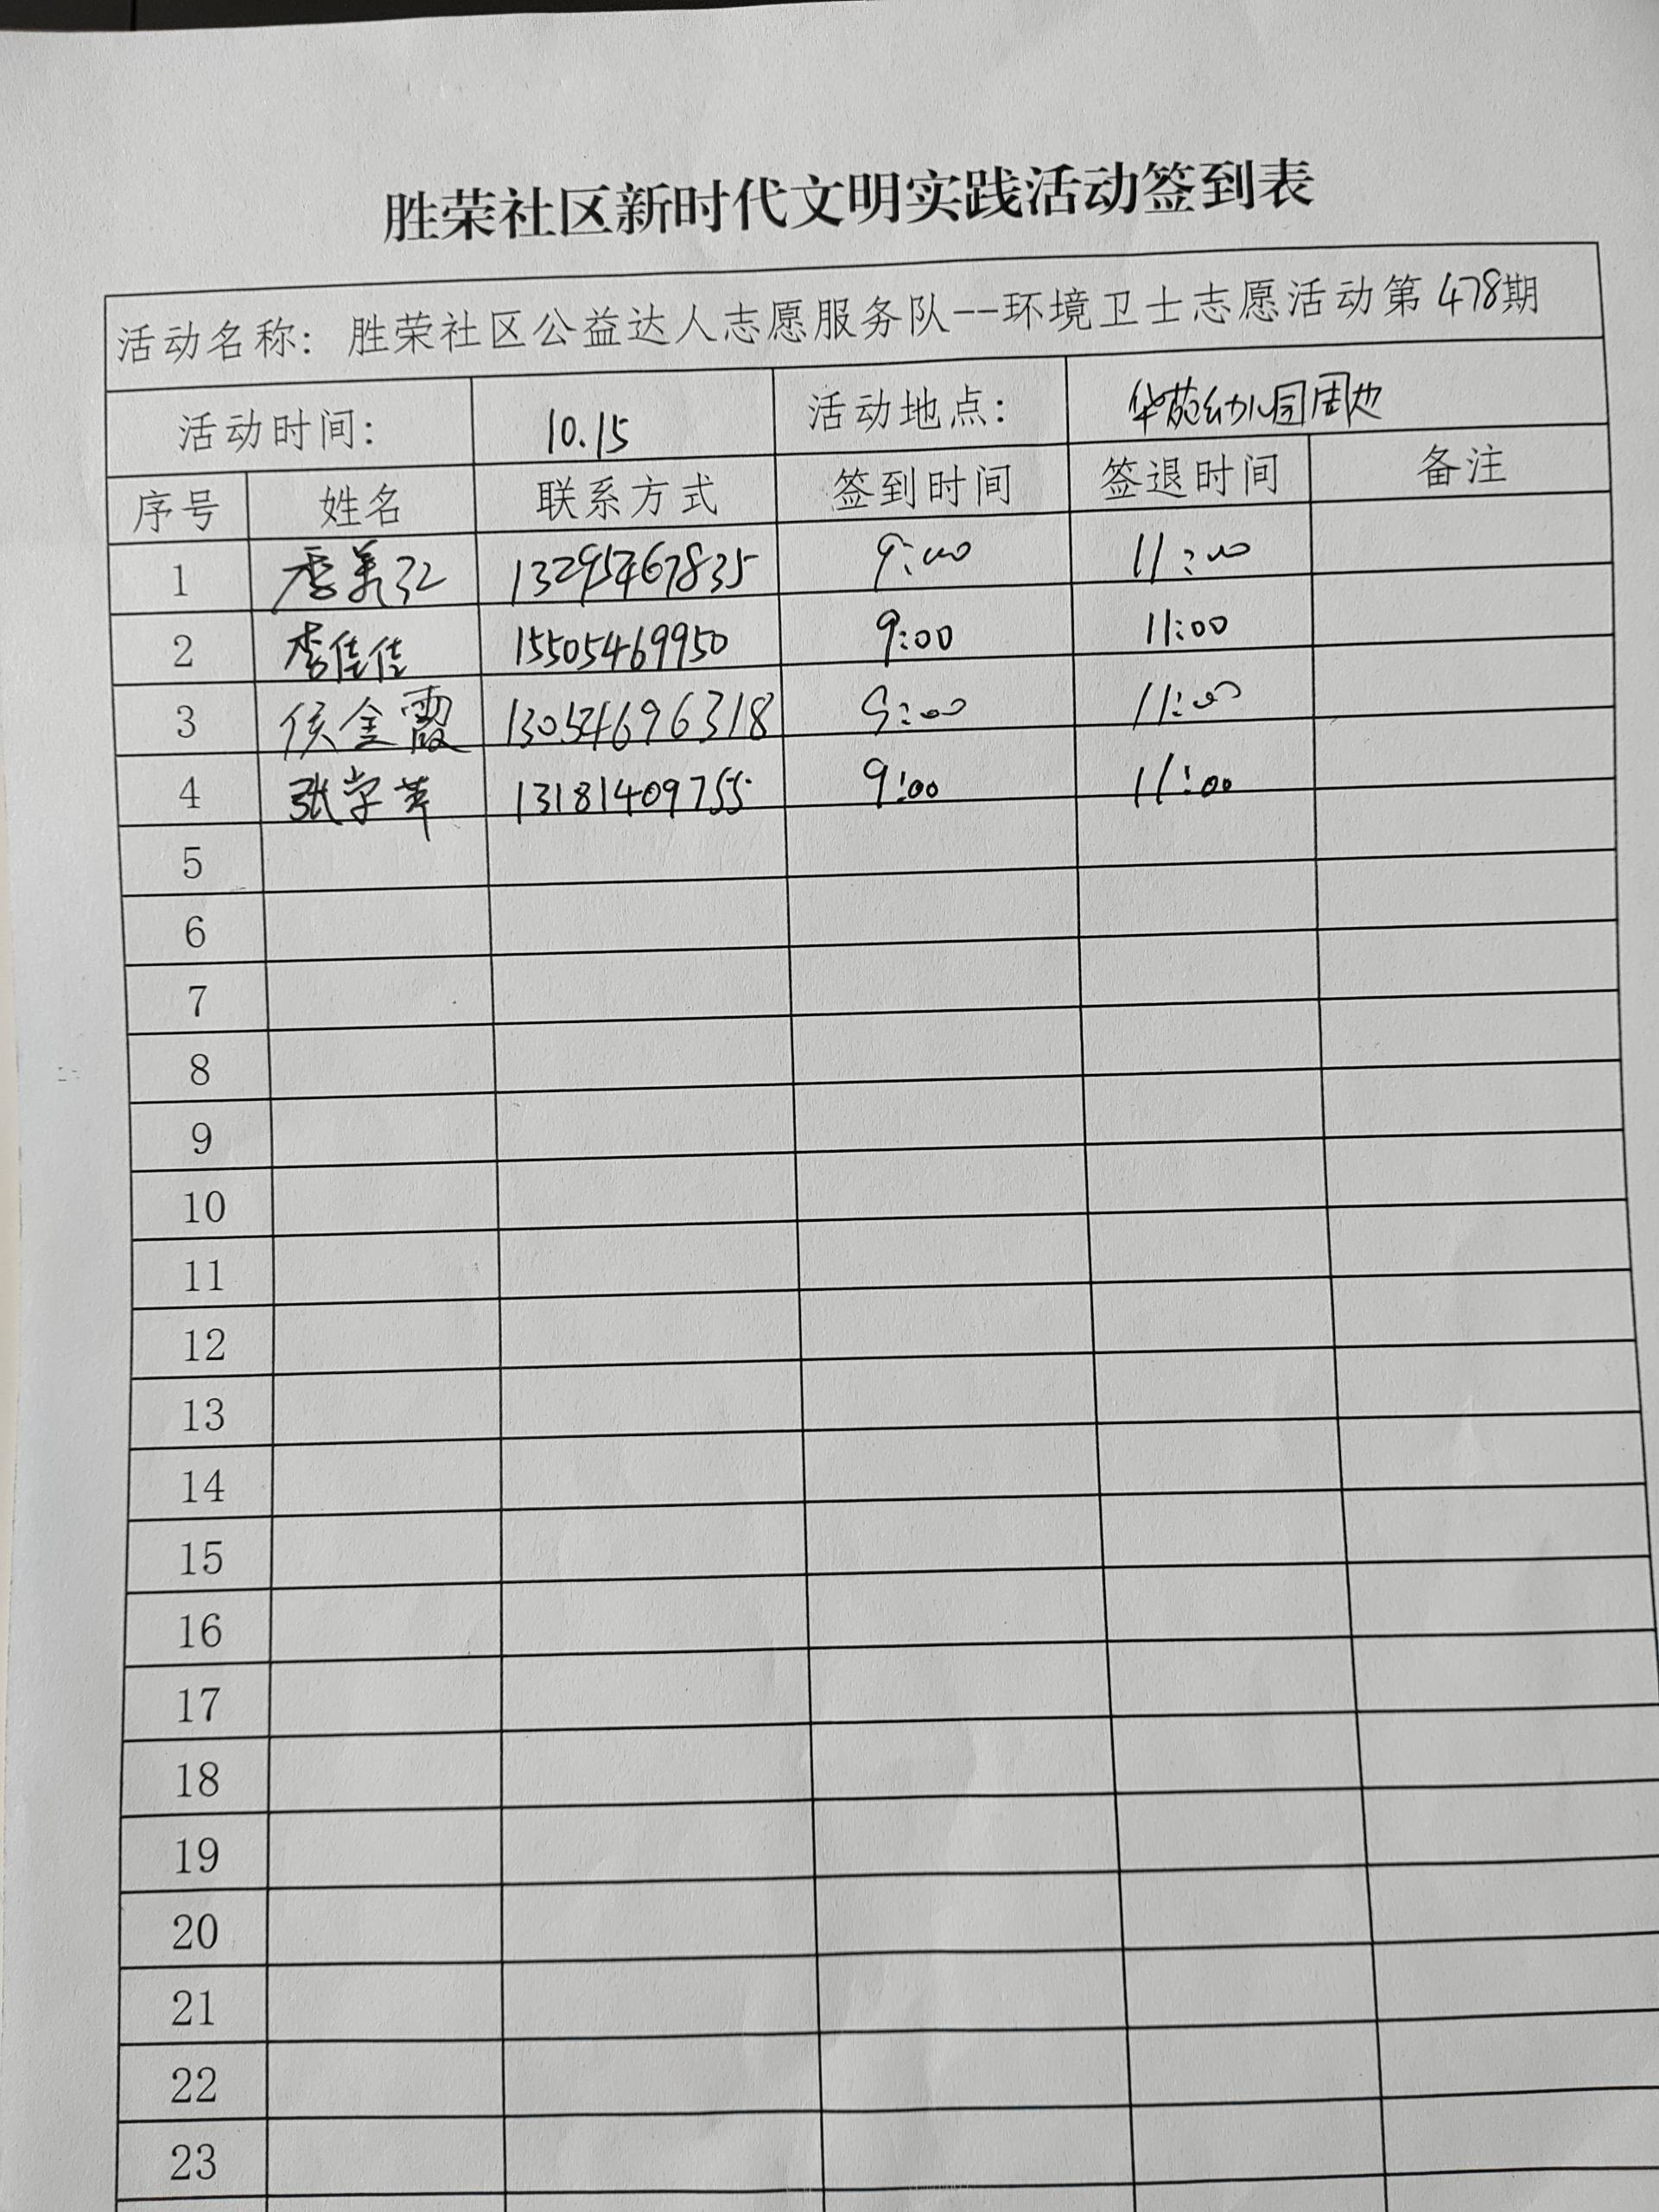 胜荣社区新时代文明实践活动签到表
活动名称: 胜荣社区公益达人志愿服务队--环境卫士志愿活动第478期
活动时间: 10.15 活动地点: 华苑幼儿园周边
序号 姓名 联系方式 签到时间 签退时间 备注
1 13295467835 9:00 11:00
2 李佳佳 15505469950 9:00 11:00
3 侯金霞 13054696318 9:00 11:00
4 张学苹 13181409755 9:00 11:00
5
6
7
8
9
10
11
12
13
14
15
16
17
18
19
20
21
22
23